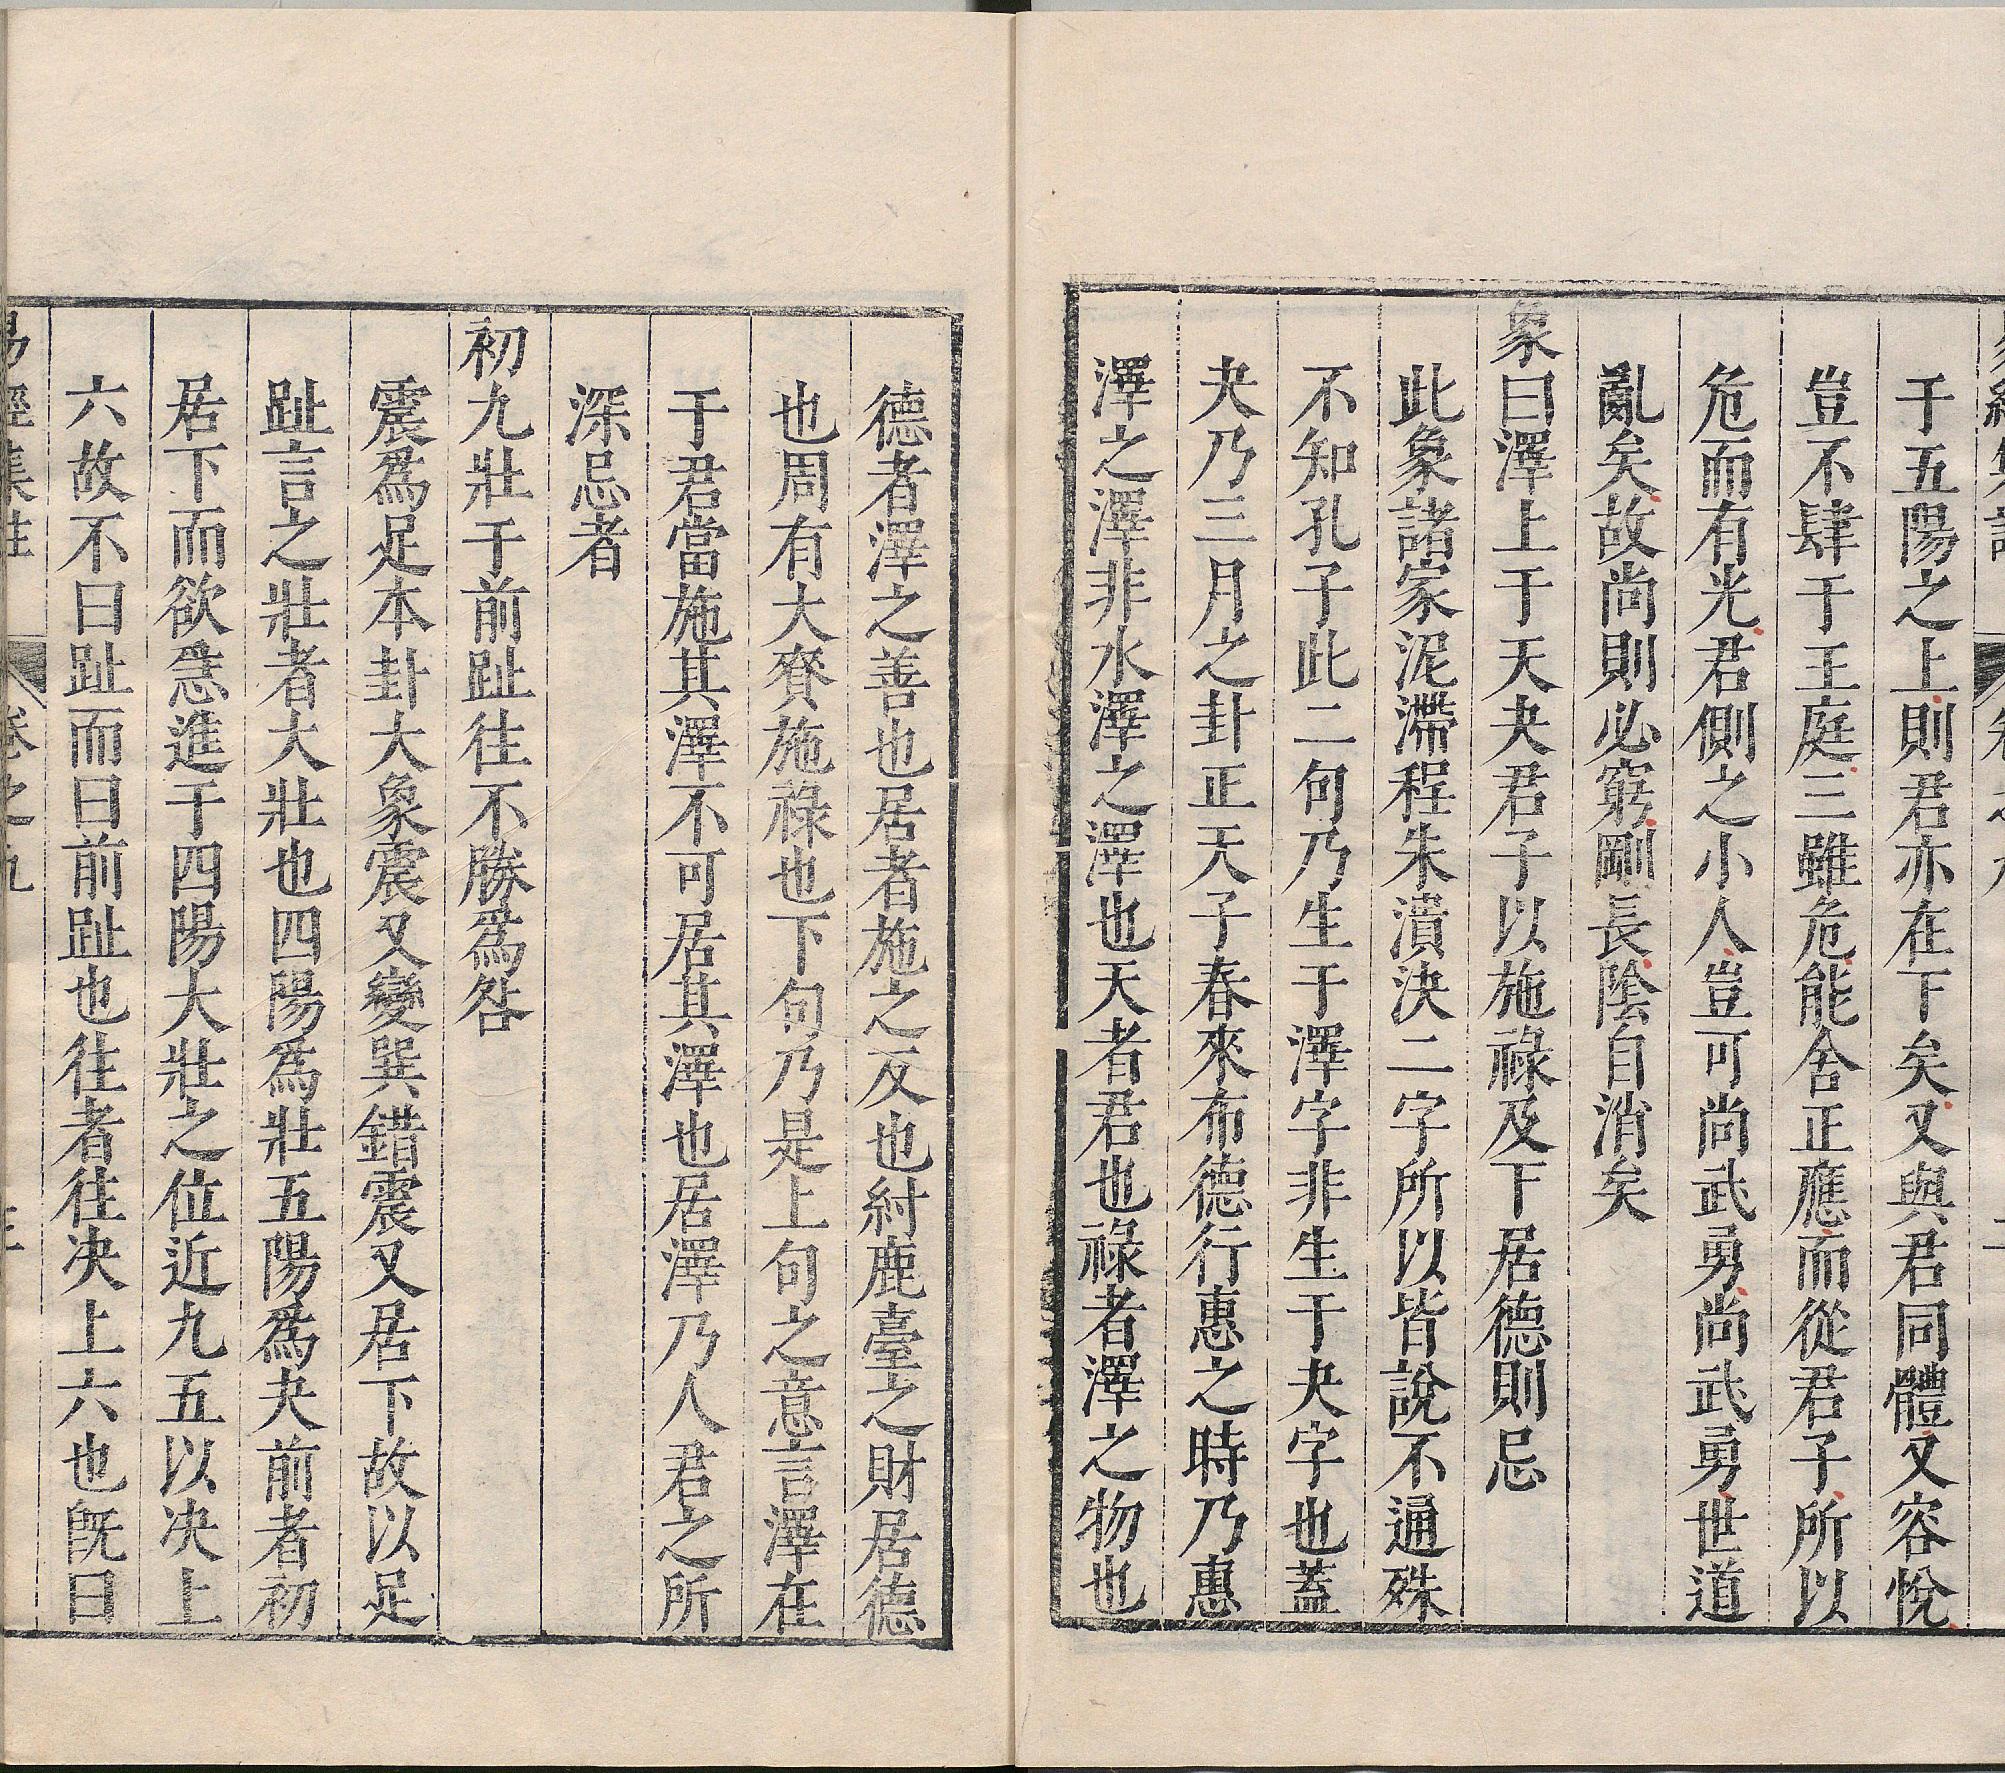 于五陽之上則君亦在下矣又與君同體又容悅
豈不肆于王庭三雖危能舍正應而從君子所以
危而有光君側之小人豈可尚武勇尚武勇世道
亂矣故尚則必窮剛長陰自消矣
象曰澤上于天夬君子以施祿及下居德則忌
此象諸家泥滯程朱潰決二字所以皆說不通殊
不知孔子此二句乃生于澤字非生于夬字也蓋
夬乃三月之卦正天子春來布德行惠之時乃惠
澤之澤非水澤之澤也天者君也祿者澤之物也
德者澤之善也居者施之反也紂鹿臺之財居德
也周有大賚施祿也下句乃是上句之意言澤在
于君當施其澤不可居其澤也居澤乃人君之所
深忌者
初九壯于前趾往不勝爲咎
震爲足本卦大象震又變巽錯震又居下故以足
趾言之壯者大壯也四陽爲壯五陽爲夬前者初
居下而欲急進于四陽大壯之位近九五以決上
六故不曰趾而曰前趾也往者往決上六也旣曰
易經集註 卷之九